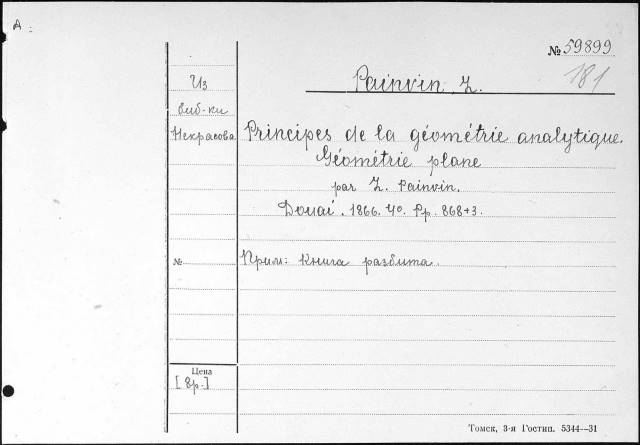 А
№ 59899
181
Из
биб-ки
Некрасова
Painvin L.
Principes de la géométrie analytique.
Géométrie plane
par L. Painvin.
Douai. 1866. 4º. Pp. 868+3.
№
Прим: Книга разбита.
Цена
[8р.]
Томск, 3-я Гостип. 5344—31